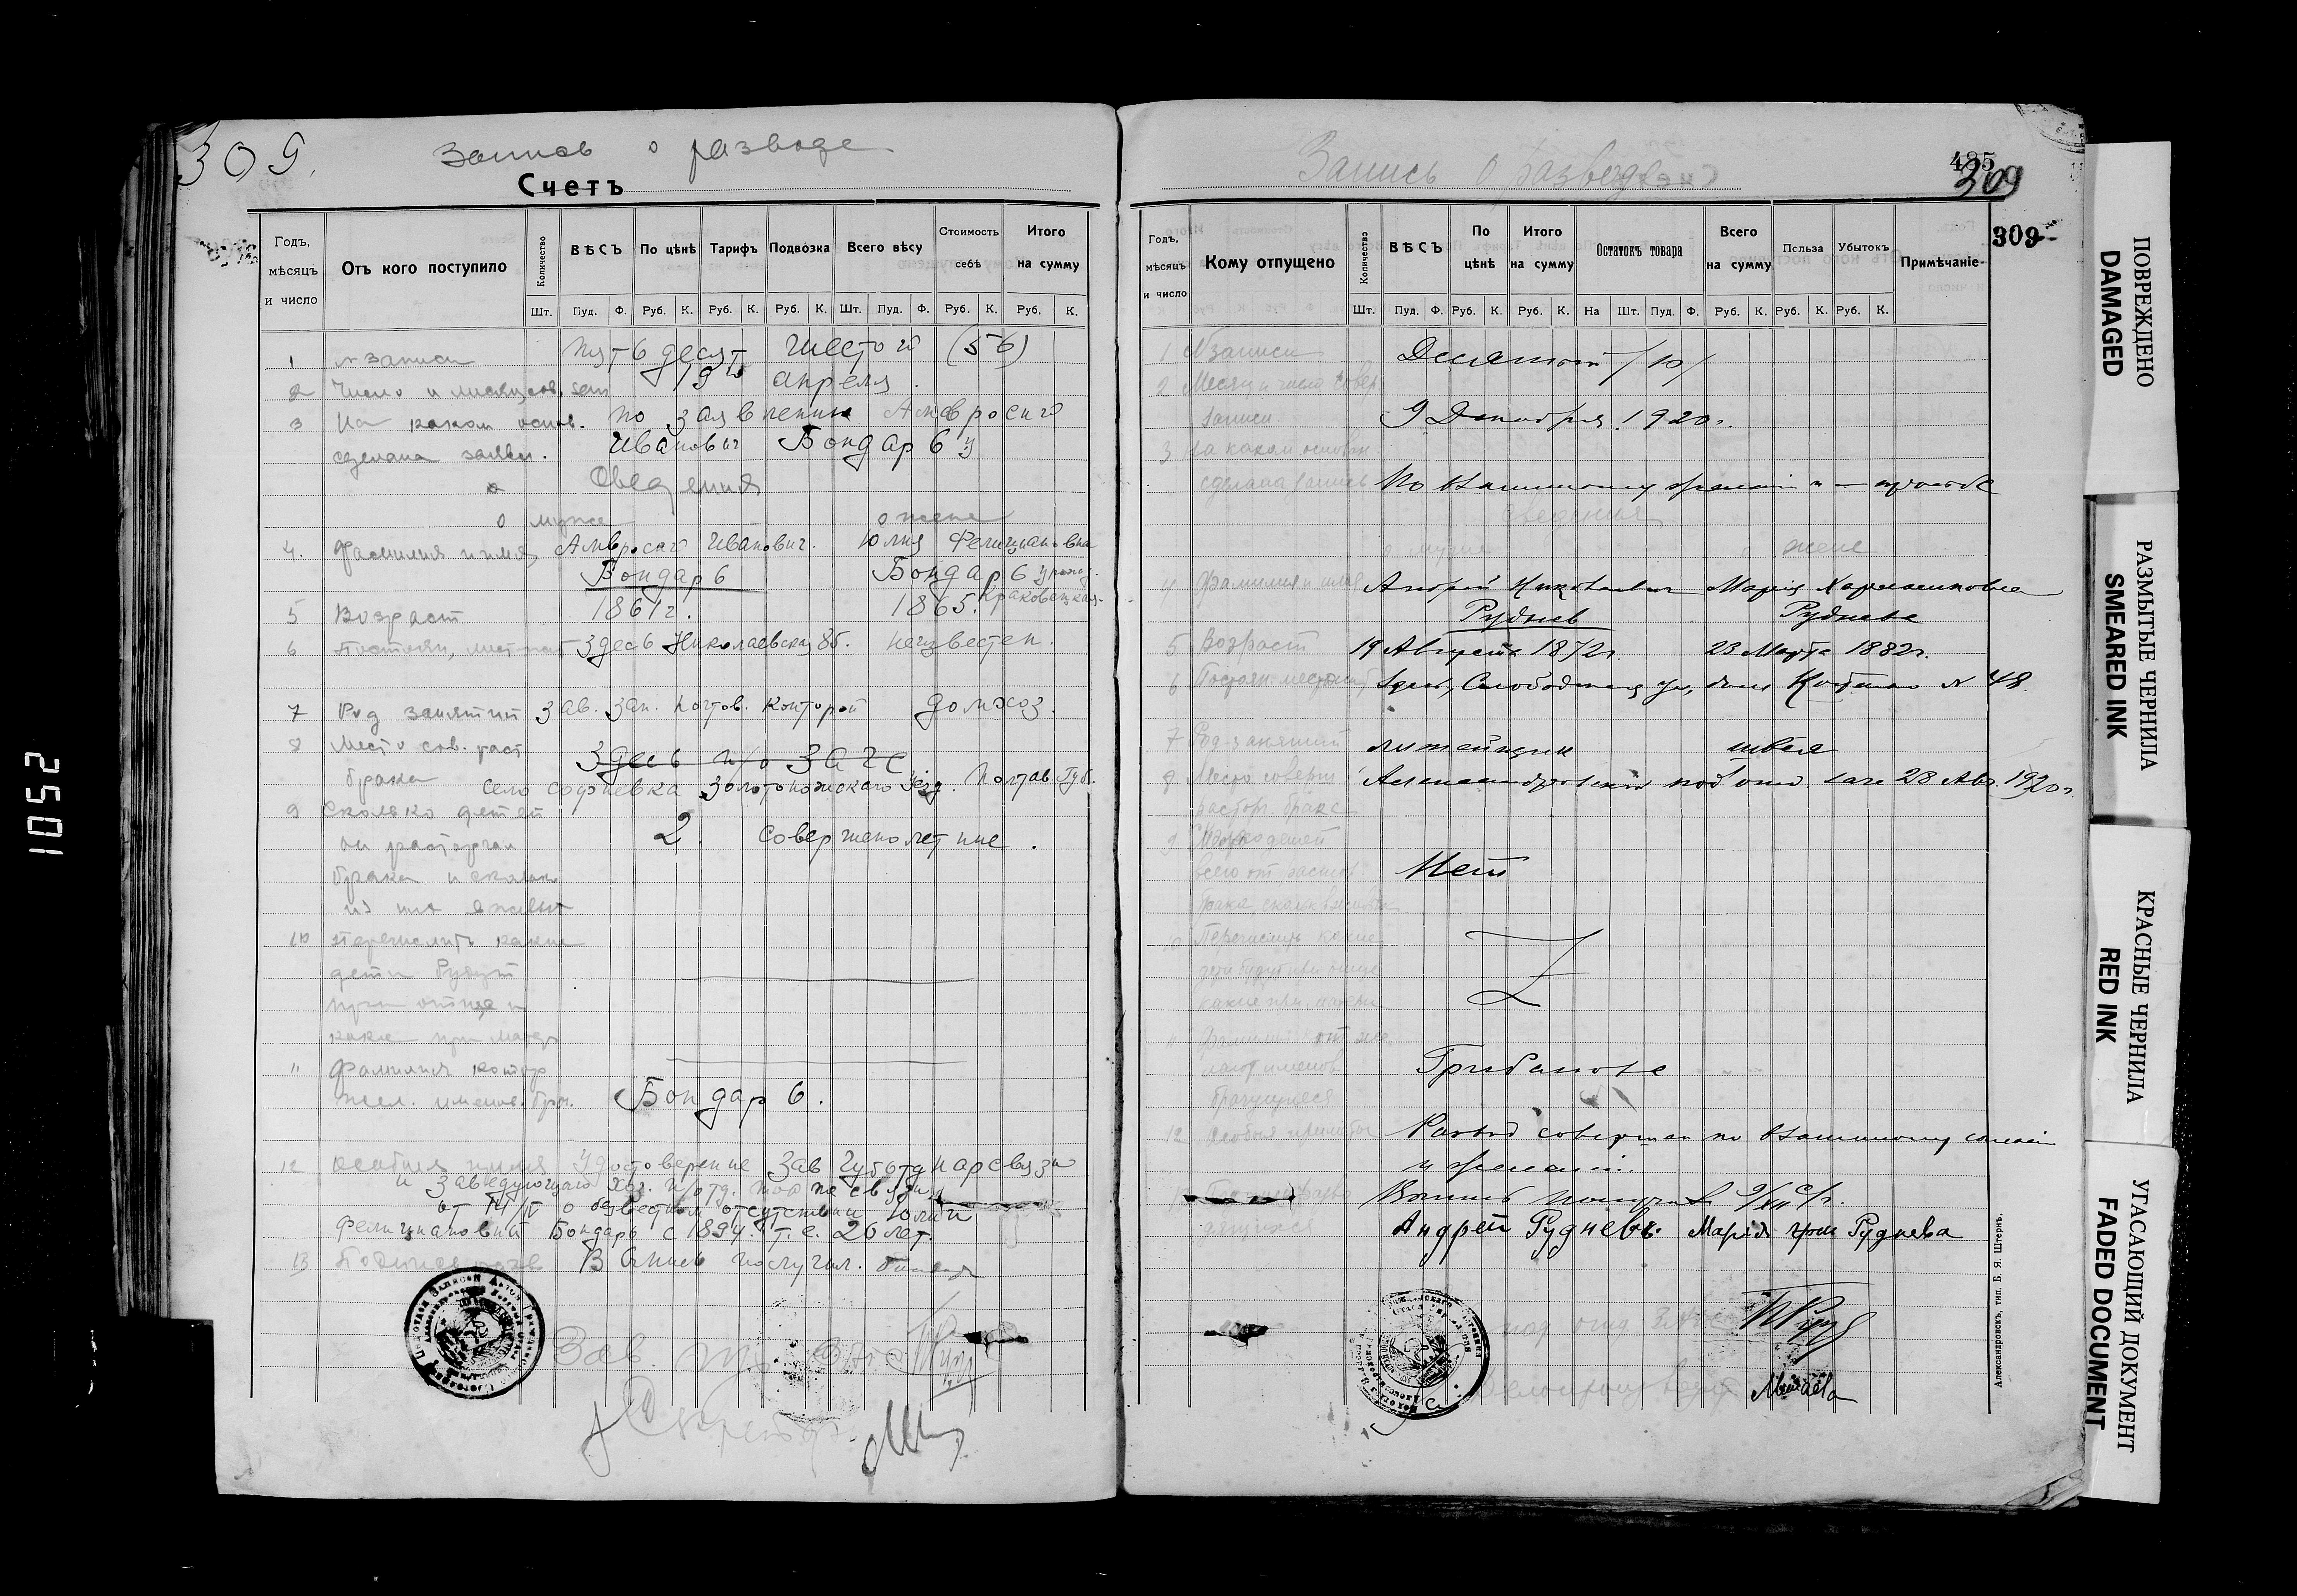 309.
Запись о разводе
Счетъ
Годъ, мѣсяцъ и число
Отъ кого поступило
Количество Шт.
ВѢСЪ Пуд. Ф.
По цѣнѣ Руб. К.
Тарифъ Руб. К.
Подвозка Руб. К.
Всего вѣсу Шт. Пуд. Ф.
Стоимость себѣ Руб. К.
Итого на сумму Руб. К.
1 № записи Пятьдесят шестой (56)
2 Число и 19го апреля.
3 На каком основ. По заявлению Амвросий
сделана заявл. Иванович Бондарь у
Сведения
о муже о жене
4. Фамилия и имя Амвросий Иванович. Юлия Фелициановна
Бондарь Бондарь урож.
5 Возраст 1861г. 1865. Краковецкая
6 Здесь Николаевская 86. неизвестен.
7 Род занятий Зав. Зап. Почтов. Конторой домхоз.
8 Место сов. раст. Здесь п/о ЗАГС
брака село Софиевка Золотоножскаго Уезд. Полтав. Губ.
9 Сколько детей
от расторгн. 2. Совершенолетние.
брака и сколько
из них в живых
10 Перечислить какие
дети будут
при отце и
какие при матер
11 Фамилия котор
жел. именов. брач. Бондарь.
12 Особыя прим. Удостоверение Зав Губотд нарсвязи
и Заведующаго хоз. п/отд. по связи
от 14/IV о безвестном отсутствии Юлии
Фелициановны Бондарь с 1894. т.е. 26 лет.
13 Подписи Выпись получил.
Зав. п/о ЗАГС
Секретарь
Запись о разводе
Счетъ
485
309
309
Годъ, мѣсяцъ и число
Кому отпущено
Количество Шт.
ВѢСЪ Пуд. Ф.
По цѣнѣ Руб. К.
Итого на сумму Руб. К.
Остатокъ товара На Шт. Пуд. Ф.
Всего на сумму Руб. К.
Польза Руб. К.
Убытокъ Руб. К.
Примѣчаніе
1 № записи Десятый /10/
2 Месяц и число совер.
записи 9 Декабря 1920г.
3 На каком основан
сделана запись По взаимному желанию просьбе
сведения
о муже о жене
4 Фамилия и имя Андрей Николаевич Мария Харлампиевна
Руднев Руднева
5 Возраст 19 Августа 1872г. 23 Марта 1882г.
6 Постоян. местожит Здесь, Слободская ул., дом № 48.
7 Род занятий литейщик швея
8 Место соверш Александровский под'отд. загс 28 Авг. 1920г.
расторг. брака
9 Сколько детей
всего от расторг Нет
брака, сколько в живых
10 Перечислить какие
дети будут при отце
какие при матери
11 Фамилии кот. же
лают именов. Грибанова
брачущиеся
12 Особыя примечан Развод совершен по взаимному согласию
и желанию.
Выпись получил 9/XII с/г.
Андрей Рудневъ. Мария Руднева
под отд ЗАГС
Делопроизводит
Александровскъ, тип. Б. Я. Штернъ.
ПОВРЕЖДЕНО
DAMAGED
РАЗМЫТЫЕ ЧЕРНИЛА
SMEARED INK
КРАСНЫЕ ЧЕРНИЛА
RED INK
УГАСАЮЩИЙ ДОКУМЕНТ
FADED DOCUMENT
1052